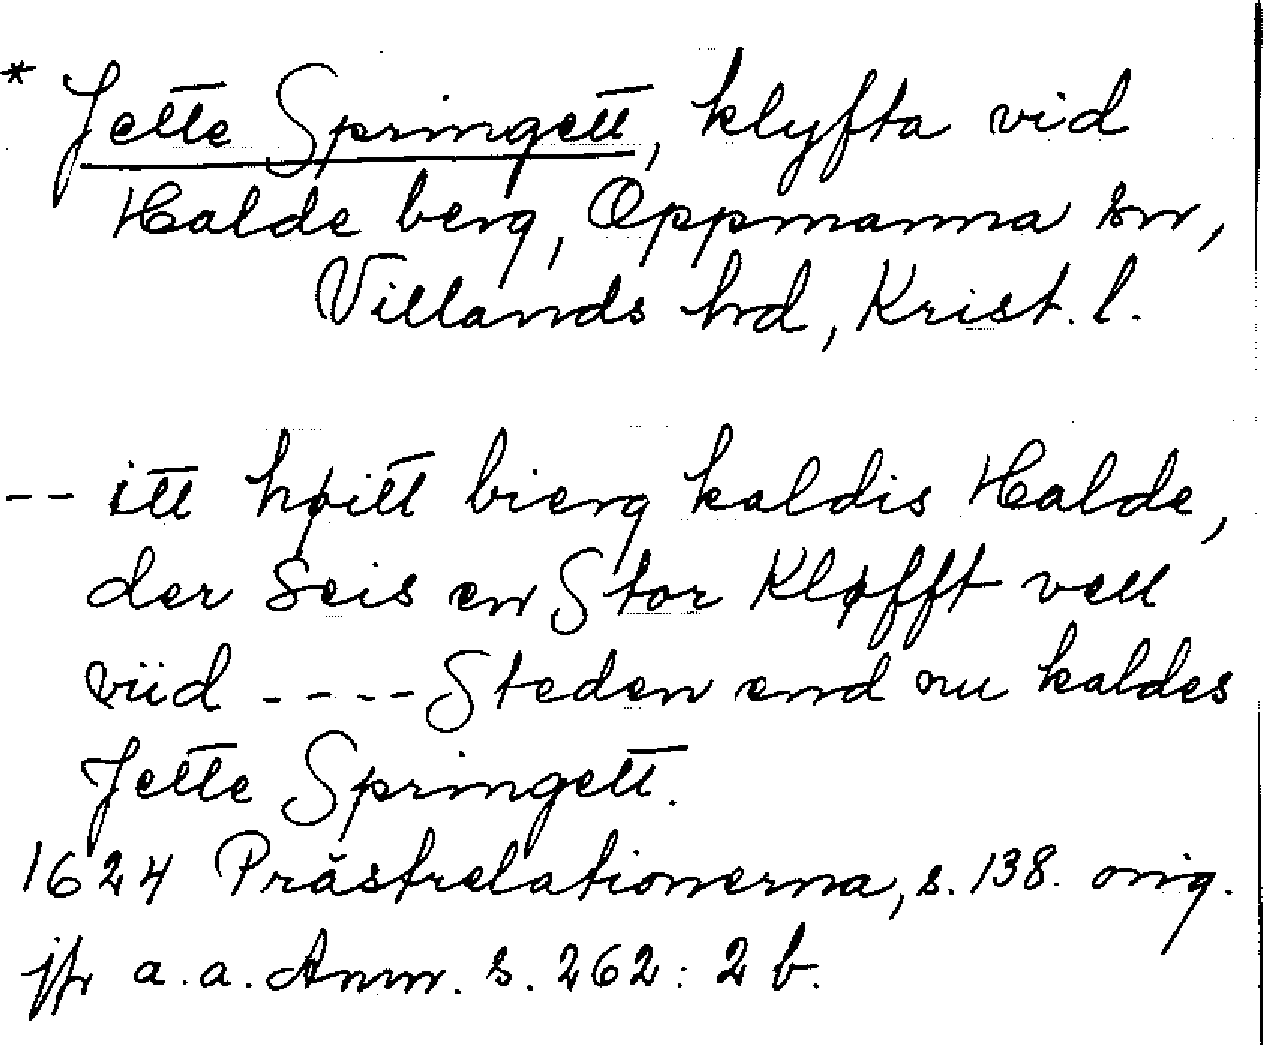 * Jette Springett, klyfta vid
Halde berg, Oppmanna sn,
Villands hd, Krist. l.
-- itt høitt bierg kaldis Halde,
der seis en Stor Kløfft vell
viid ---- Steden end nu kaldes
Jette Springett.
1624 Prästrelationerna, s. 138. orig.
jfr a.a. Anm. s. 262: 2 b.